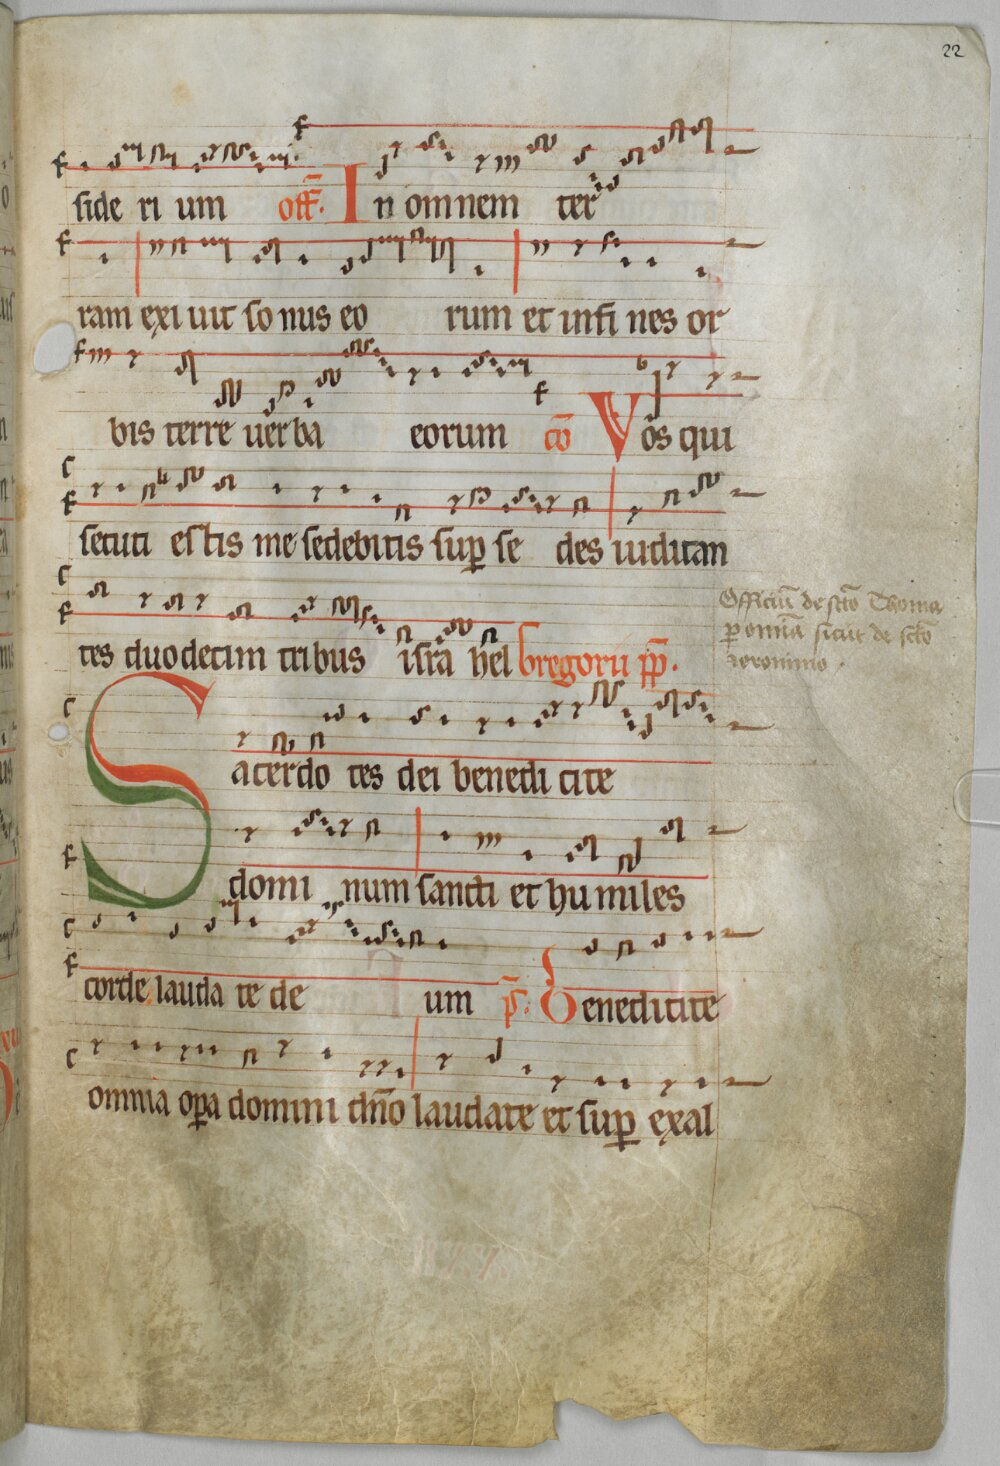 22
side ri um off̄. In omnem ter
ram exi uit so nus eo rum et in fi nes or
bis terre uer ba eorum cō Vos qui
secuti estis me sedebitis sup̱ se des iudican
tes duodecim tribus isra hel Gregorii pp̄.
Officiū de sct̄o Thoma
p̱ omnia sicut de sct̄o
Ieronimo .
Sacerdo tes dei benedi cite
domi num sancti et hu miles
corde lauda te de um ps̄. Benedicite
omnia op̱a domini dn̄o laudate et sup̱ exal